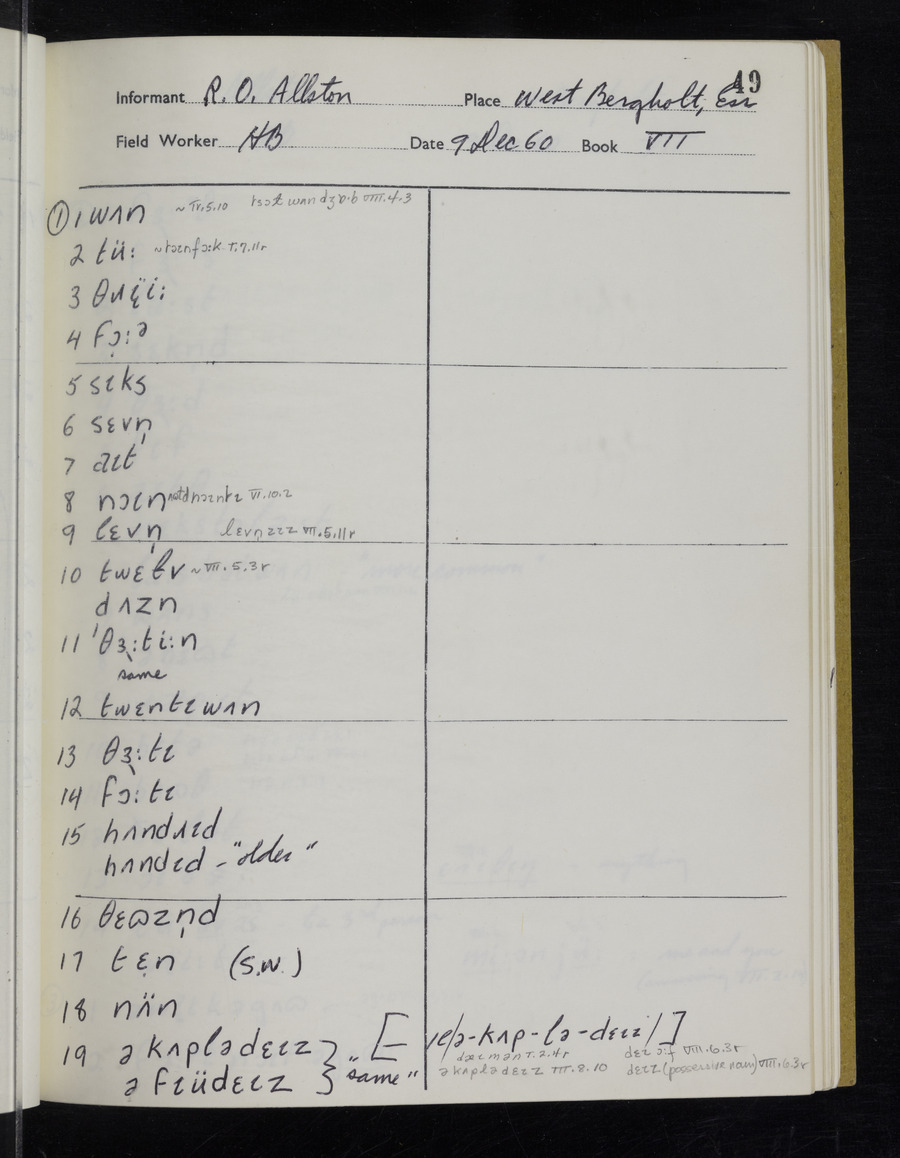 49
Informant R. O. Allston Place West Bergholt, Ess
Field Worker HB Date 9 Dec 60 Book VII
① 1 wʌn ~ IV.5.10 VIII.4.3
2 tü: I.7.11r
3 θɹ̣ï:
4 fɔ̣:ə
5 sɪks
6 sɛvn̩
7 aɪt
8 nɔɪn VI.10.2
9 lɛvn̩ lɛvnzɪz VII.5.11r
10 twɛɫv ~ VII.5.3r
dʌzn
11 'θɜ:ti:n
same
12 twɛntɪwʌn
13 θɜ:tɪ
14 fɔ:tɪ
15 hʌndɹɪd
hʌndɪd - "older"
16 θɛɷzn̩d
17 tɛ̣n (S.W.)
18 nʌ̈n
19 ə kʌplədɛɪz } "same" [ ie/ə-kʌp-lə-dɛɪz/]
ə fɪüdɛɪz
I.2.4r dɛɪ ə:f VIII.6.3r
ə kʌplədɛɪz III.8.10 dɛɪz (possessive noun) VIII.6.3r